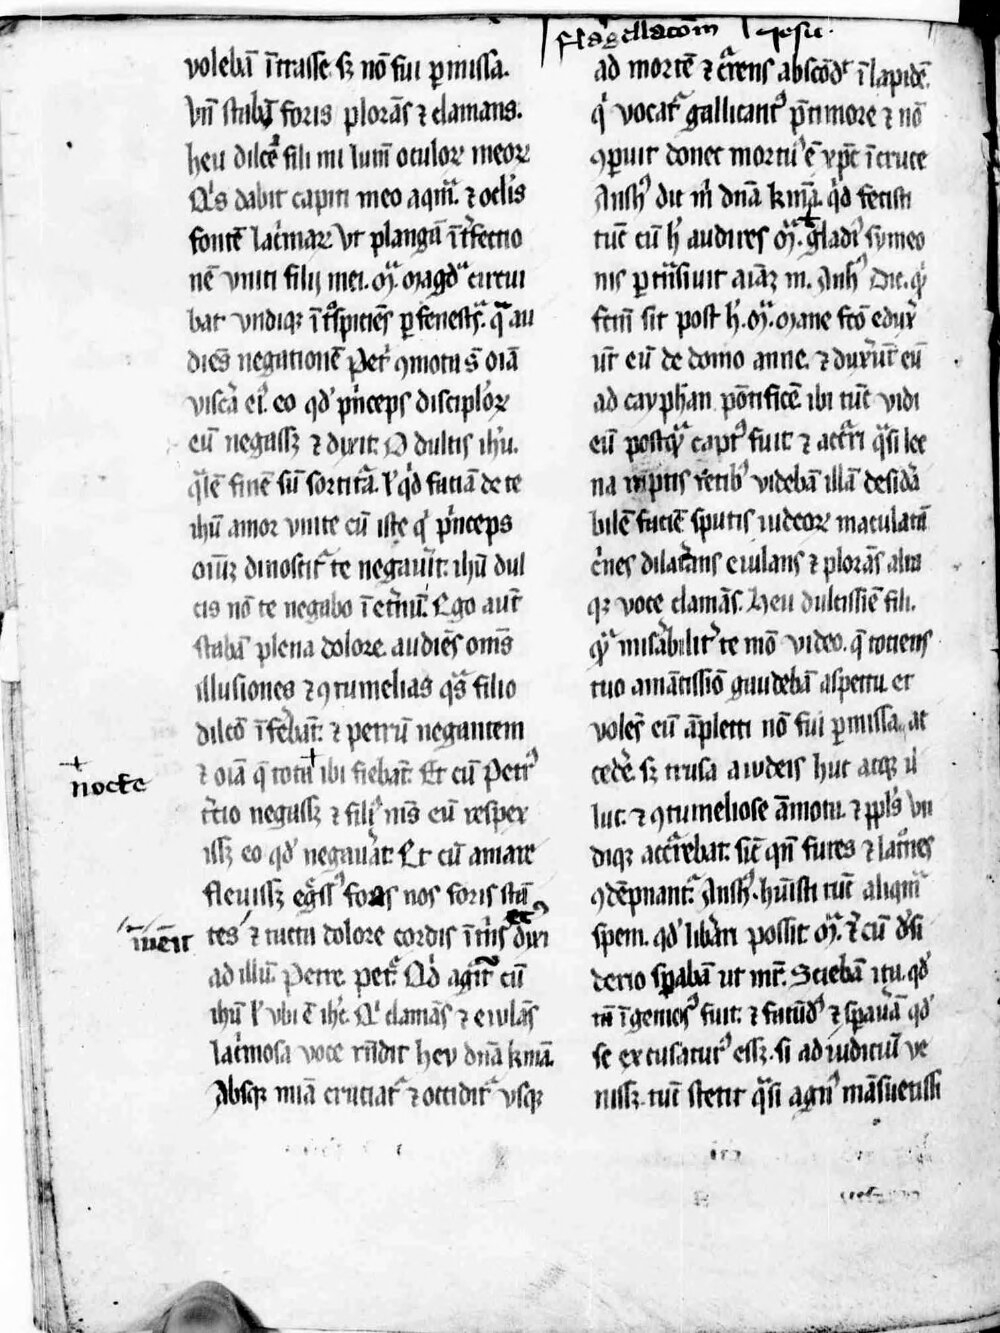 flagellacōm Jesu.
volebā īt̄rasse sꝫ nō fui ꝑmissa.
Vn̄ stabā foris plorās ⁊ clamans.
heu dilcē fili mi lum̄ oculoꝝ meoꝝ
Qͥs dabit capiti meo aqm̄. ⁊ oclīs
fontē lacͥmaꝝ vt plangā īt̄fectio
nē vniti filij mei. Oꝛ. magdᵃ circui
bat vndiqꝫ ītᵒspiciēs ꝑ fenestᵃs. q̄ au
diēs negationē Petͥ ꝯmota sͭ oīa
viscͣa eiꝰ. eo qd̓ pͥnceps discipl̓oꝝ
eū negassꝫ ⁊ dixit. O dulcis ihū.
qᵃlē finē sū sortitᵃ. l̓ qͥd faciā de te
ihū amor vnite cū iste qͥ pͥnceps
oīuꝫ dinoscitᷣ te negauͥt. ihū dul
cis nō te negabo ī et̄nū. Ego aut̄
stabā plena dolore. audiēs om̄s
illusiones ⁊ ꝯtumelias qᵃs filio
dilcō īferebāt. ⁊ petrū negantem
⁊ oīa q̄ tota ibi fiebāt. Et cū Petrꝰ
+ nocte
tͨcio negassꝫ ⁊ filiꝰ mꝰ eū respex
issꝫ eo qd̓ negauāt. Et cū amare
fleuissꝫ egͤssꝰ foras nos foris stā
inuēit tes ⁊ tactā dolore cordis īt̄nis et dixi
ad illū. Petre. petᵉ. Qd̓ agitᷣ cū
ihū l̓ vbi ē ihc̄. Qͥ clamās ⁊ eiulās
lacͥmosa voce rn̄dit heu dn̄a km̄a.
Absqꝫ mīa cruciatᷣ ⁊ occiditᷣ vsqꝫ
ad mortē ⁊ cͥrens abscōdͭ ī lapidē.
qͥ vocatᷣ gallicantꝰ pͥ timore ⁊ nō
ꝯꝑuit donec mortuꝰ ē xpc̄ ī cruce
Anshꝰ dic mͥ dn̄a km̄a. qͥd fecisti
tūc cū h̓ audires Oꝛ. gladiꝰ symeo
nis ꝑtͣnsiuit aīaꝫ m. Anhꝰ Dic. qͥ
fc̄m̄ sit post h̓. Oꝛ. Mane fc̄o edux
ūt eū de domo anne. ⁊ duxͬūt eū
ad cayphan pōtificē ibi tūc vidi
eū postqᵃ captꝰ fuit ⁊ accͬri qᵃsi lee
na raptis retibꝰ videbā illā desidͬa
bilē faciē sputis iudeoꝝ maculatā
cͥnes dilacͬans eiulans ⁊ plorās alta
qꝫ voce clamās. Heu dulcissīe fili.
qᵃ misͬabilitͬ te mō video. q̄ totiens
tuo amātissīo gaudebā aspectu et
volēs eū āplecti nō fui ꝑmissa. ac
cedͤe. sꝫ trusa a iudeis huc atqꝫ il̓
luc. ⁊ ꝯtumeliose āmota. ⁊ ppl̓s vn
diqꝫ accͬrebat. sic̄ qn̄ fures ⁊ latͦnes
ꝯdēpnant̄. Anshꝰ. hūisti tūc aliqm̄
spem. qd̓ libͬari possit Oꝛ. Et cū dͤsi
derio spͬabā ut mr̄. Sciebā itā. qd̓
tā īgeniosꝰ fuit. ⁊ facūdꝰ ⁊ spͬauā qd̓
se excusaturꝰ essꝫ. si ad iudiciū ve
nissꝫ. tūc stetit qᵃsi agnꝰ māsuetissi